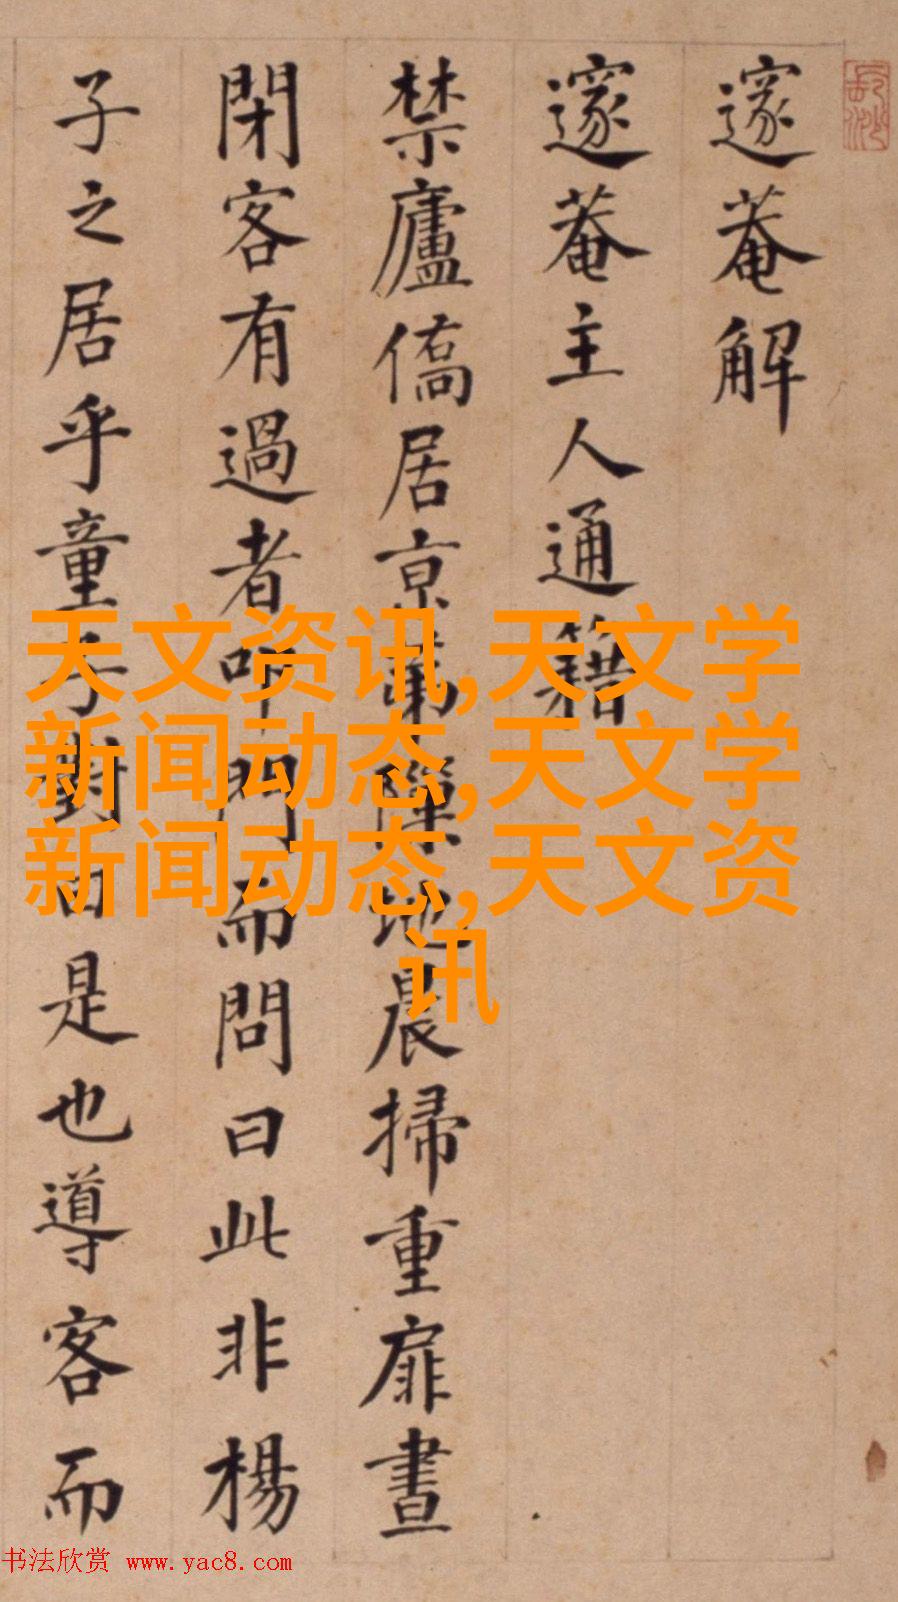 邃菴解
邃菴主人通籍
禁廬僑居京地晨掃重扉晝
閉客有過者叩門而問曰此非楊
子之居乎童子對曰是也導客而
天文资讯,天文学
新闻动态,天文学
新闻动态,天文资
讯
书法欣赏 www.yac8.com